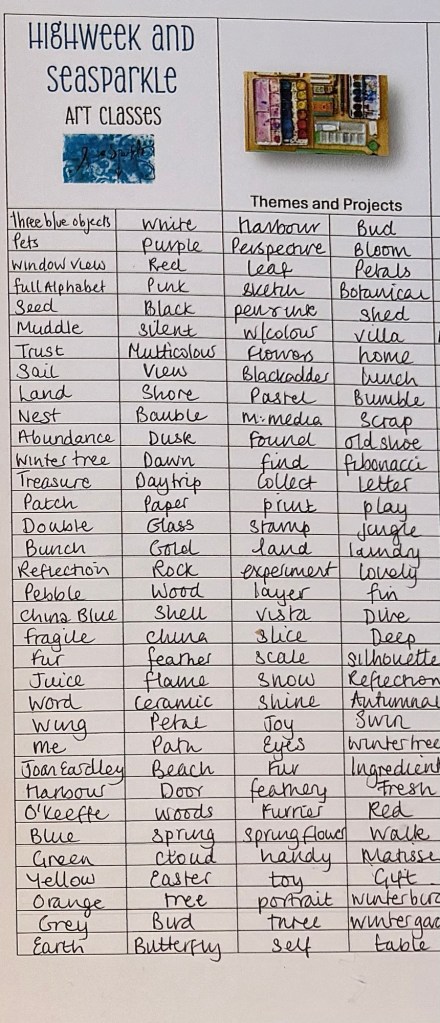 HIGHWEEK AND
SEASPARKLE
ART CLASSES
Themes and Projects
three blue objects White Harbour Bud
Pets Purple Perspective Bloom
Window View Red Leaf Petals
full Alphabet Pink Sketch Botanical
Seed Black pen & ink shed
Muddle silent w/colour villa
Trust Multicolour Flowers home
Sail View Blackadder
Land Shore Pastel Bumble
Nest Bauble M.media Scrap
Abundance Dusk found old shoe
Winter tree Dawn find fibonacci
Treasure Daytrip Collect Letter
Patch Paper print play
Double Glass Stamp jungle
Bunch Gold land laundry
Reflection Rock experiment Lovely
Pebble Wood layer
China Blue Shell vista
Fragile China Slice Deep
Fur feather scale Silhouette
Juice flame Snow Reflection
Word ceramic shine Autumnal
Wing Petal Joy
me Path Eyes Winter tree
Joan Eardley Beach Fur Ingredient
Harbour Door feathery Fresh
O'Keeffe Woods Furrier Red
Blue Spring Spring flower Walk
Green Cloud handy Matisse
Yellow Easter toy Gift
Orange tree portrait
Grey Bird three
Earth Butterfly Self table